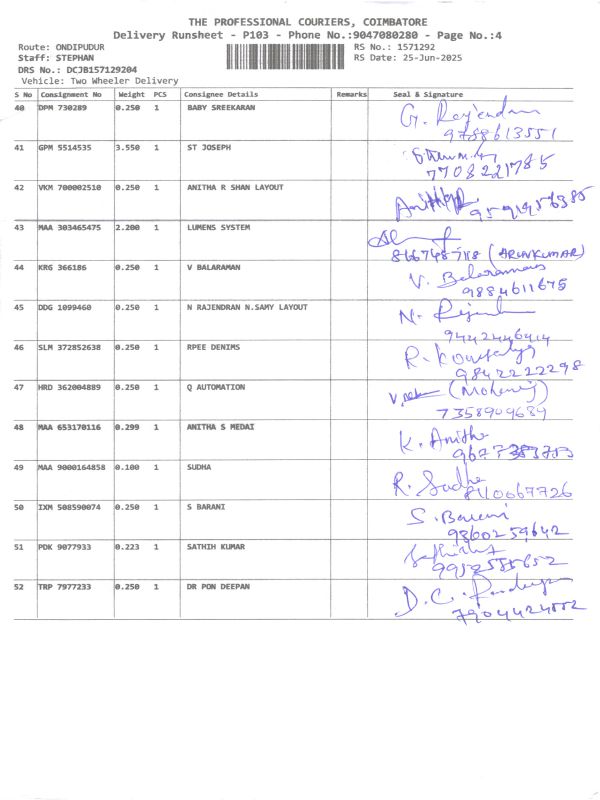 THE PROFESSIONAL COURIERS, COIMBATORE
Delivery Runsheet - P103 - Phone No.:9047080280 - Page No.:4
Route: ONDIPUDUR RS No.: 1571292
Staff: STEPHAN RS Date: 25-Jun-2025
DRS No.: DCJB157129204
Vehicle: Two Wheeler Delivery
S No Consignment No Weight PCS Consignee Details Remarks Seal & Signature
40 DPM 730289 0.250 1 BABY SREEKARAN G. Rajendran
9758613551
41 GPM 5514535 3.550 1 ST JOSEPH
7708221785
42 VKM 700002510 0.250 1 ANITHA R SHAN LAYOUT Anitha R 9591956385
43 MAA 303465475 2.200 1 LUMENS SYSTEM
8667487118 (ARUNKUMAR)
44 KRG 366186 0.250 1 V BALARAMAN V. Balaraman
9884611675
45 DDG 1099460 0.250 1 N RAJENDRAN N.SAMY LAYOUT N. Rajendran
9442446414
46 SLM 372852638 0.250 1 RPEE DENIMS R. Kowsalya
9842222298
47 HRD 362004889 0.250 1 Q AUTOMATION (Mohanraj)
7358909689
48 MAA 653170116 0.299 1 ANITHA S MEDAI K. Anitha
49 MAA 9000164858 0.100 1 SUDHA R. Sudha
8110067726
50 IXM 508590074 0.250 1 S BARANI S. Barani
9360259642
51 PDK 9077933 0.223 1 SATHIH KUMAR
9952555652
52 TRP 7977233 0.250 1 DR PON DEEPAN D. C. Pondeepan
7904424552